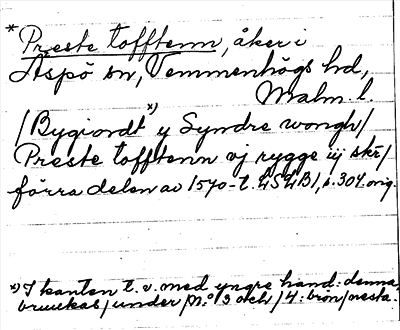 *Preste tofftenn, åker i
Äspö sn, Vemmenhögs hd,
Malm. l.
/Bygiordt *) y Syndre wongh/
Preste tofftenn vj rygge iij skr/
förra delen av 1570-t. LSLB1, s. 304 orig.
*) I kanten t. v. med yngre hand: denna
bruckas/under/N:o 3 och/4: brön/vesta.